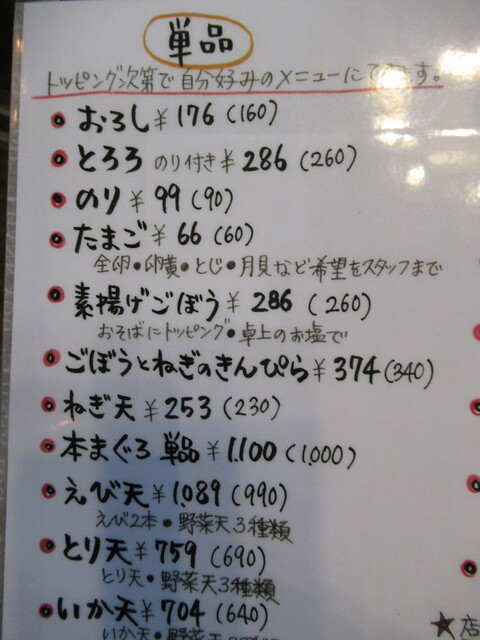 単品
トッピング次第で自分好みのメニューにできます。
おろし ¥176 (160)
とろろ のり付き ¥286 (260)
のり ¥99 (90)
たまご ¥66 (60)
全卵・卵黄・とじ・月見など希望をスタッフまで
素揚げごぼう ¥286 (260)
おそばにトッピング・卓上のお塩で
ごぼうとねぎのきんぴら ¥374 (340)
ねぎ天 ¥253 (230)
本まぐろ 単品 ¥1.100 (1.000)
えび天 ¥1.089 (990)
えび2本・野菜天3種類
とり天 ¥759 (690)
とり天・野菜天3種類
いか天 ¥704 (640)
いか天・野菜天
★店